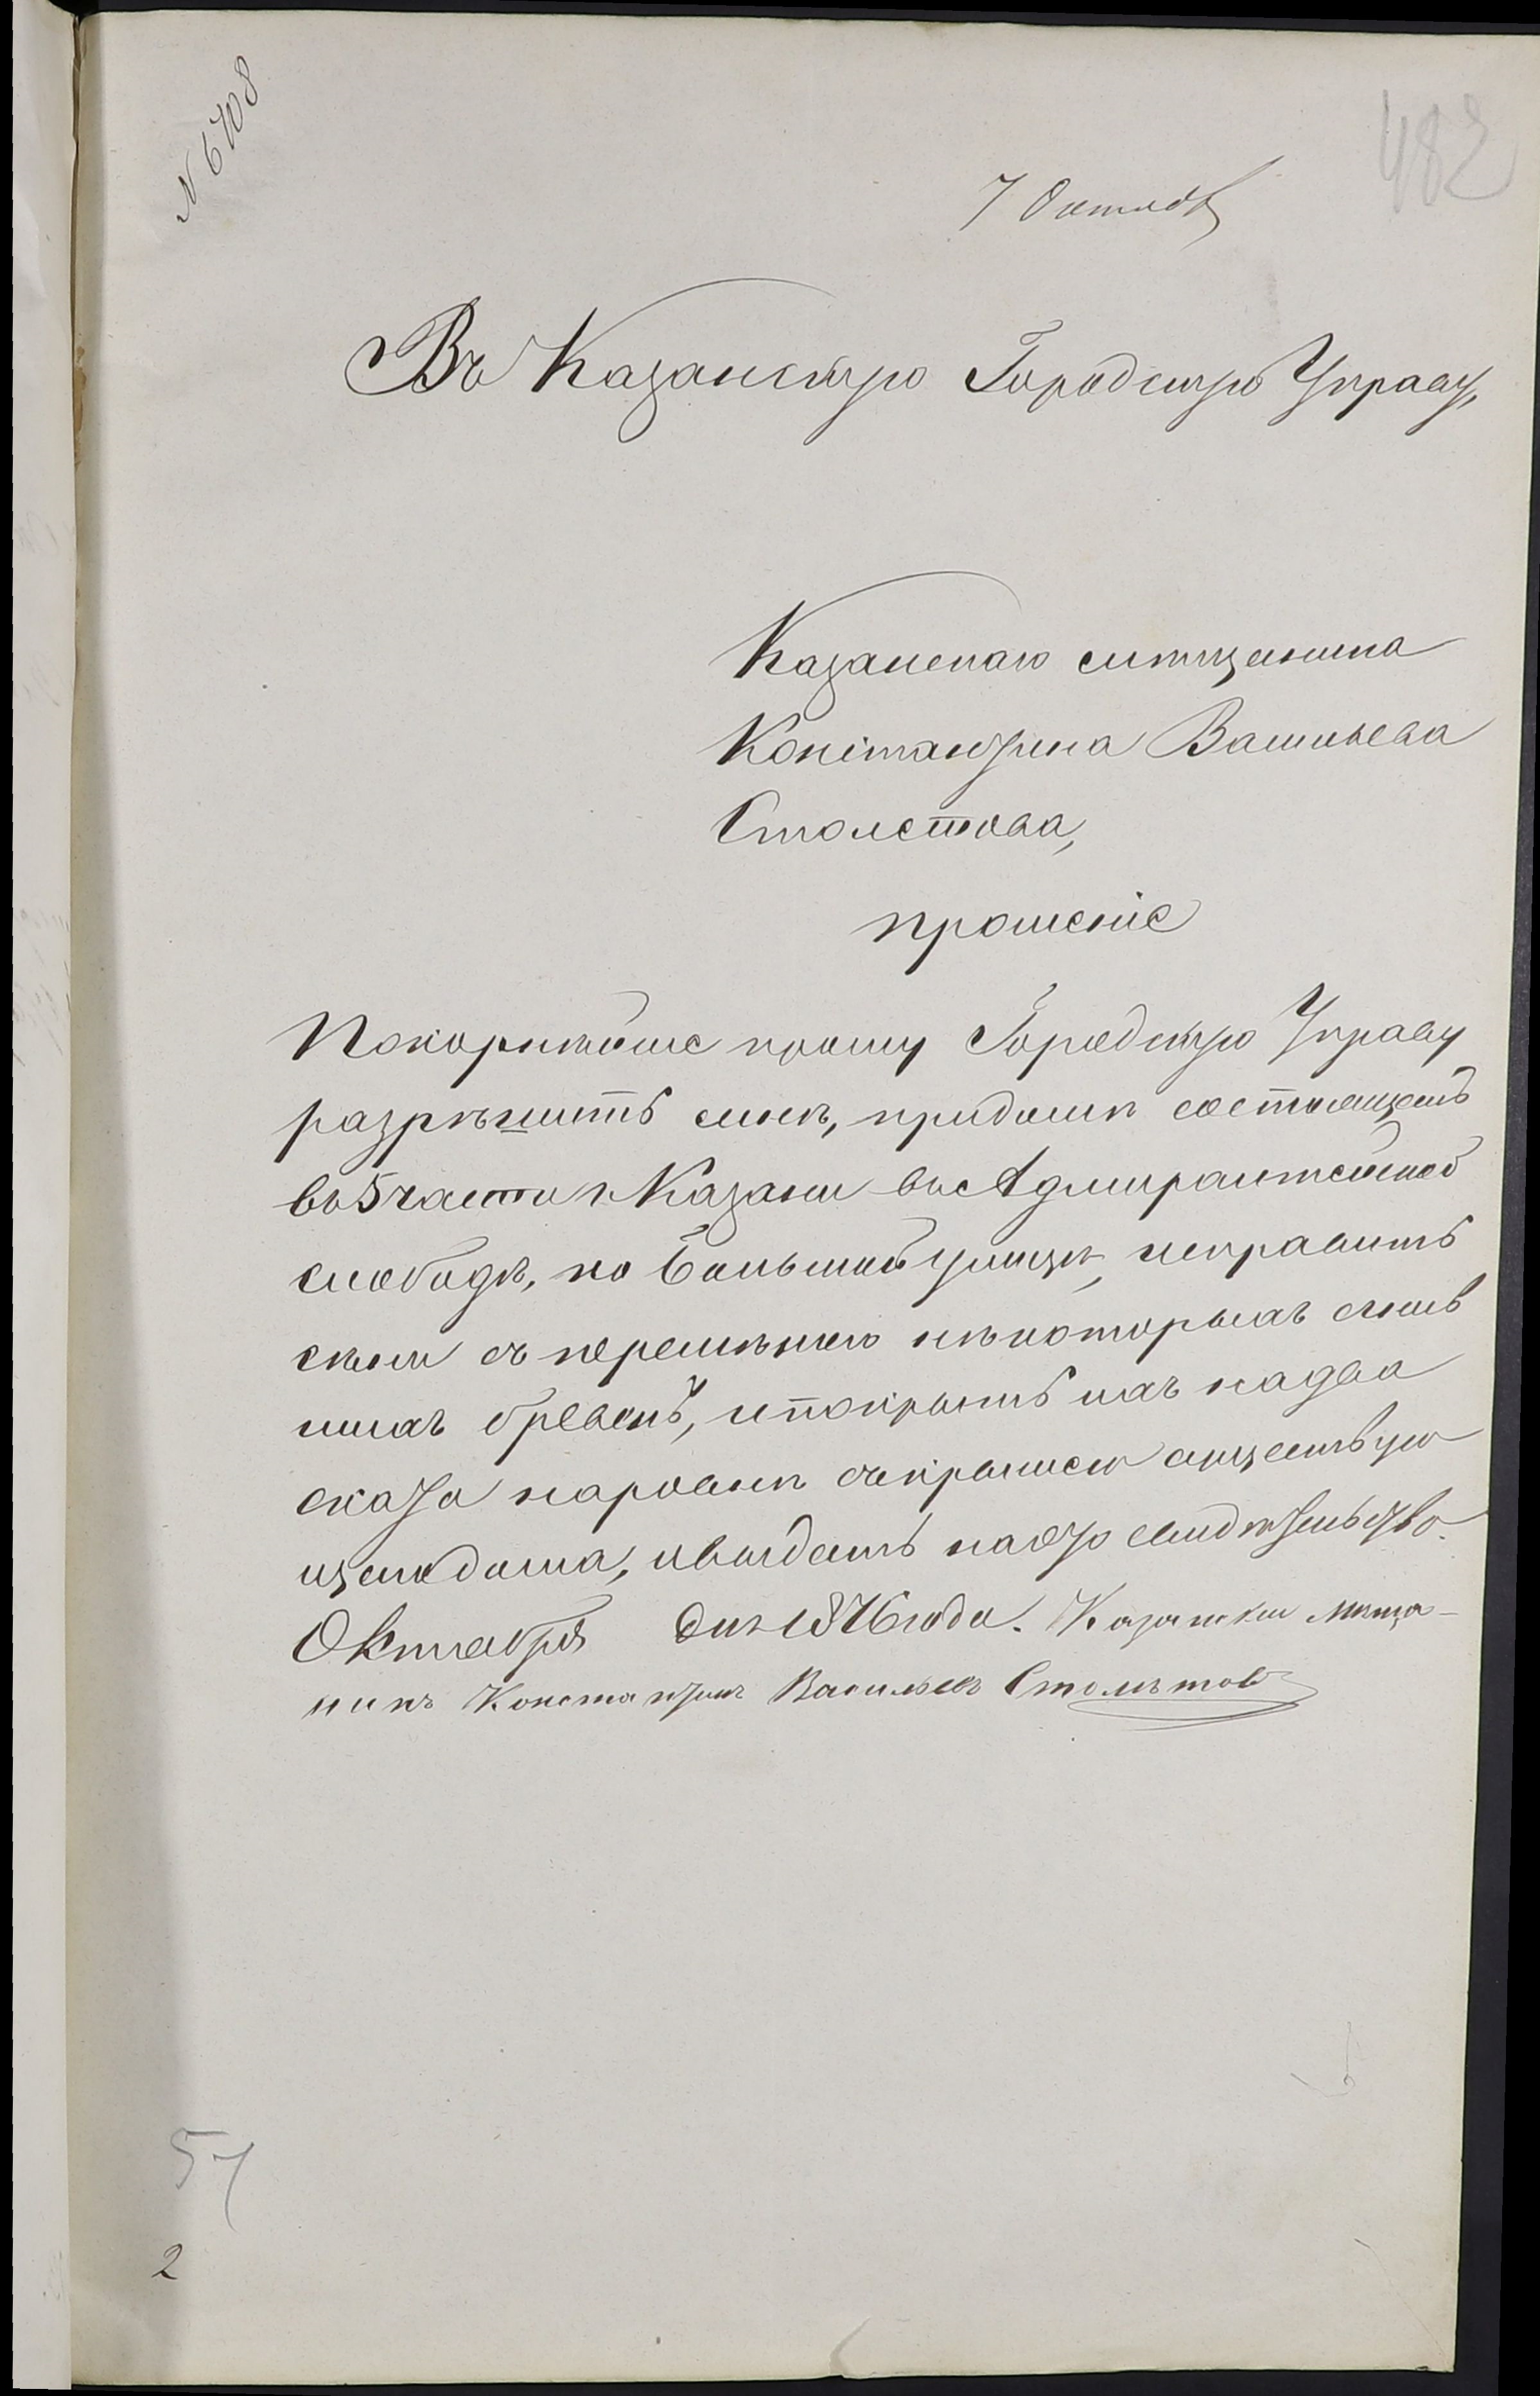 N 6708
482
7 Октяб
Въ Казанскую Городскую Управу,
Казанскаго мѣщанина
Константина Васильева
Столетова,
прошеніе
Покорнѣйше прошу Городскую Управу
разрѣшить мнѣ, придомѣ состоящемъ
въ 5 части г. Казани въ Адмиралтейской
слободѣ, по Большой улицѣ, исправить
сѣни съ перемѣною нѣкоторыхъ сгнив
шихъ бревенъ, и покрыть ихъ на два
ската наровнѣ съ крышею существую
щаго дома, и выдать на это свидѣтельство.
Октября дня 1876 года. Казански меща-
нинъ Константинъ Васильевъ Столѣтовъ
57
2